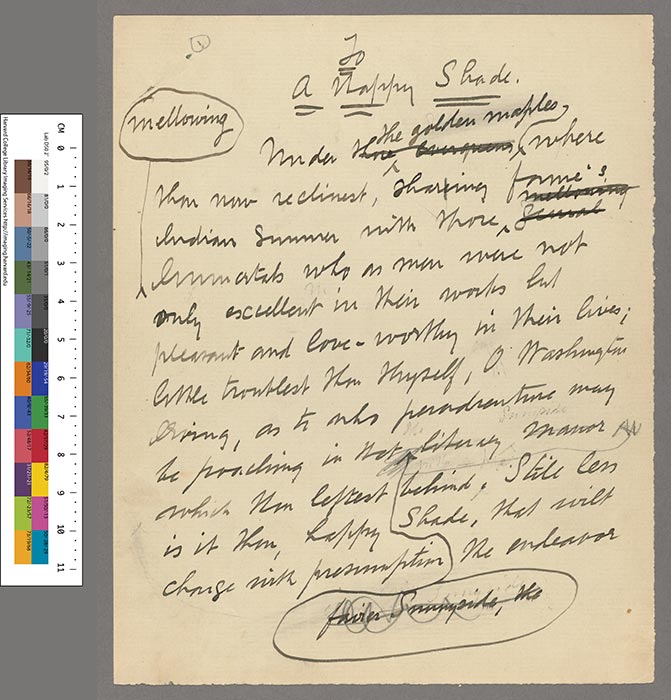 1
To
A Happy Shade.
mellowing
the golden maples,
Under where
thou now reclinest, sharing fame's
mellowing
Indian Summer with those
Immortals who as men were not
only excellent in their works but
pleasant and love-worthy in their lives;
little troublest thou thyself, O Washington
Irving, as to who peradventure may
Sunnyside
be poaching in that literary manor
which thou leftest behind. Still less
is it thou, happy Shade, that wilt
charge with presumption the endeavor
fairer Sunnyside, the
CM 0 1 2 3 4 5 6 7 8 9 10 11
Harvard College Library Imaging Services http://imaging.harvard.edu